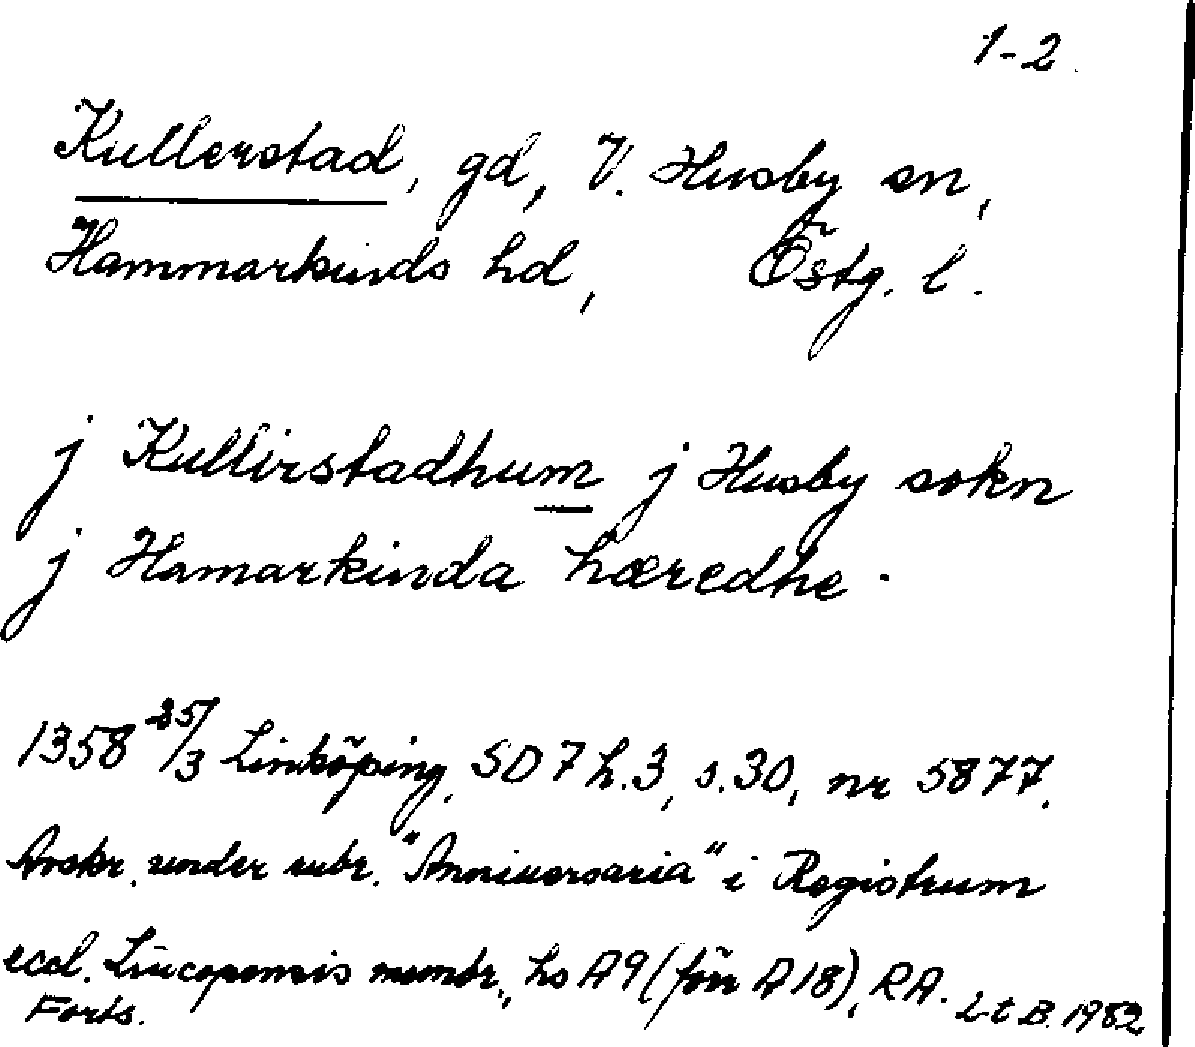 1-2.
Kullerstad, gd, V. Husby sn,
Hammarkinds hd, Östg. l.
j Kullirstadhum j Husby sokn
j Hamarkinda hæredhe.
1358 25/3 Linköping, SD 7 h.3, s.30, nr 5877.
Avskr. under rubr. "Anniuersaria" i Registrum
eccl. Lincopensis membr., hs A9 (förr A 18), RA.
Forts. LtB. 1982